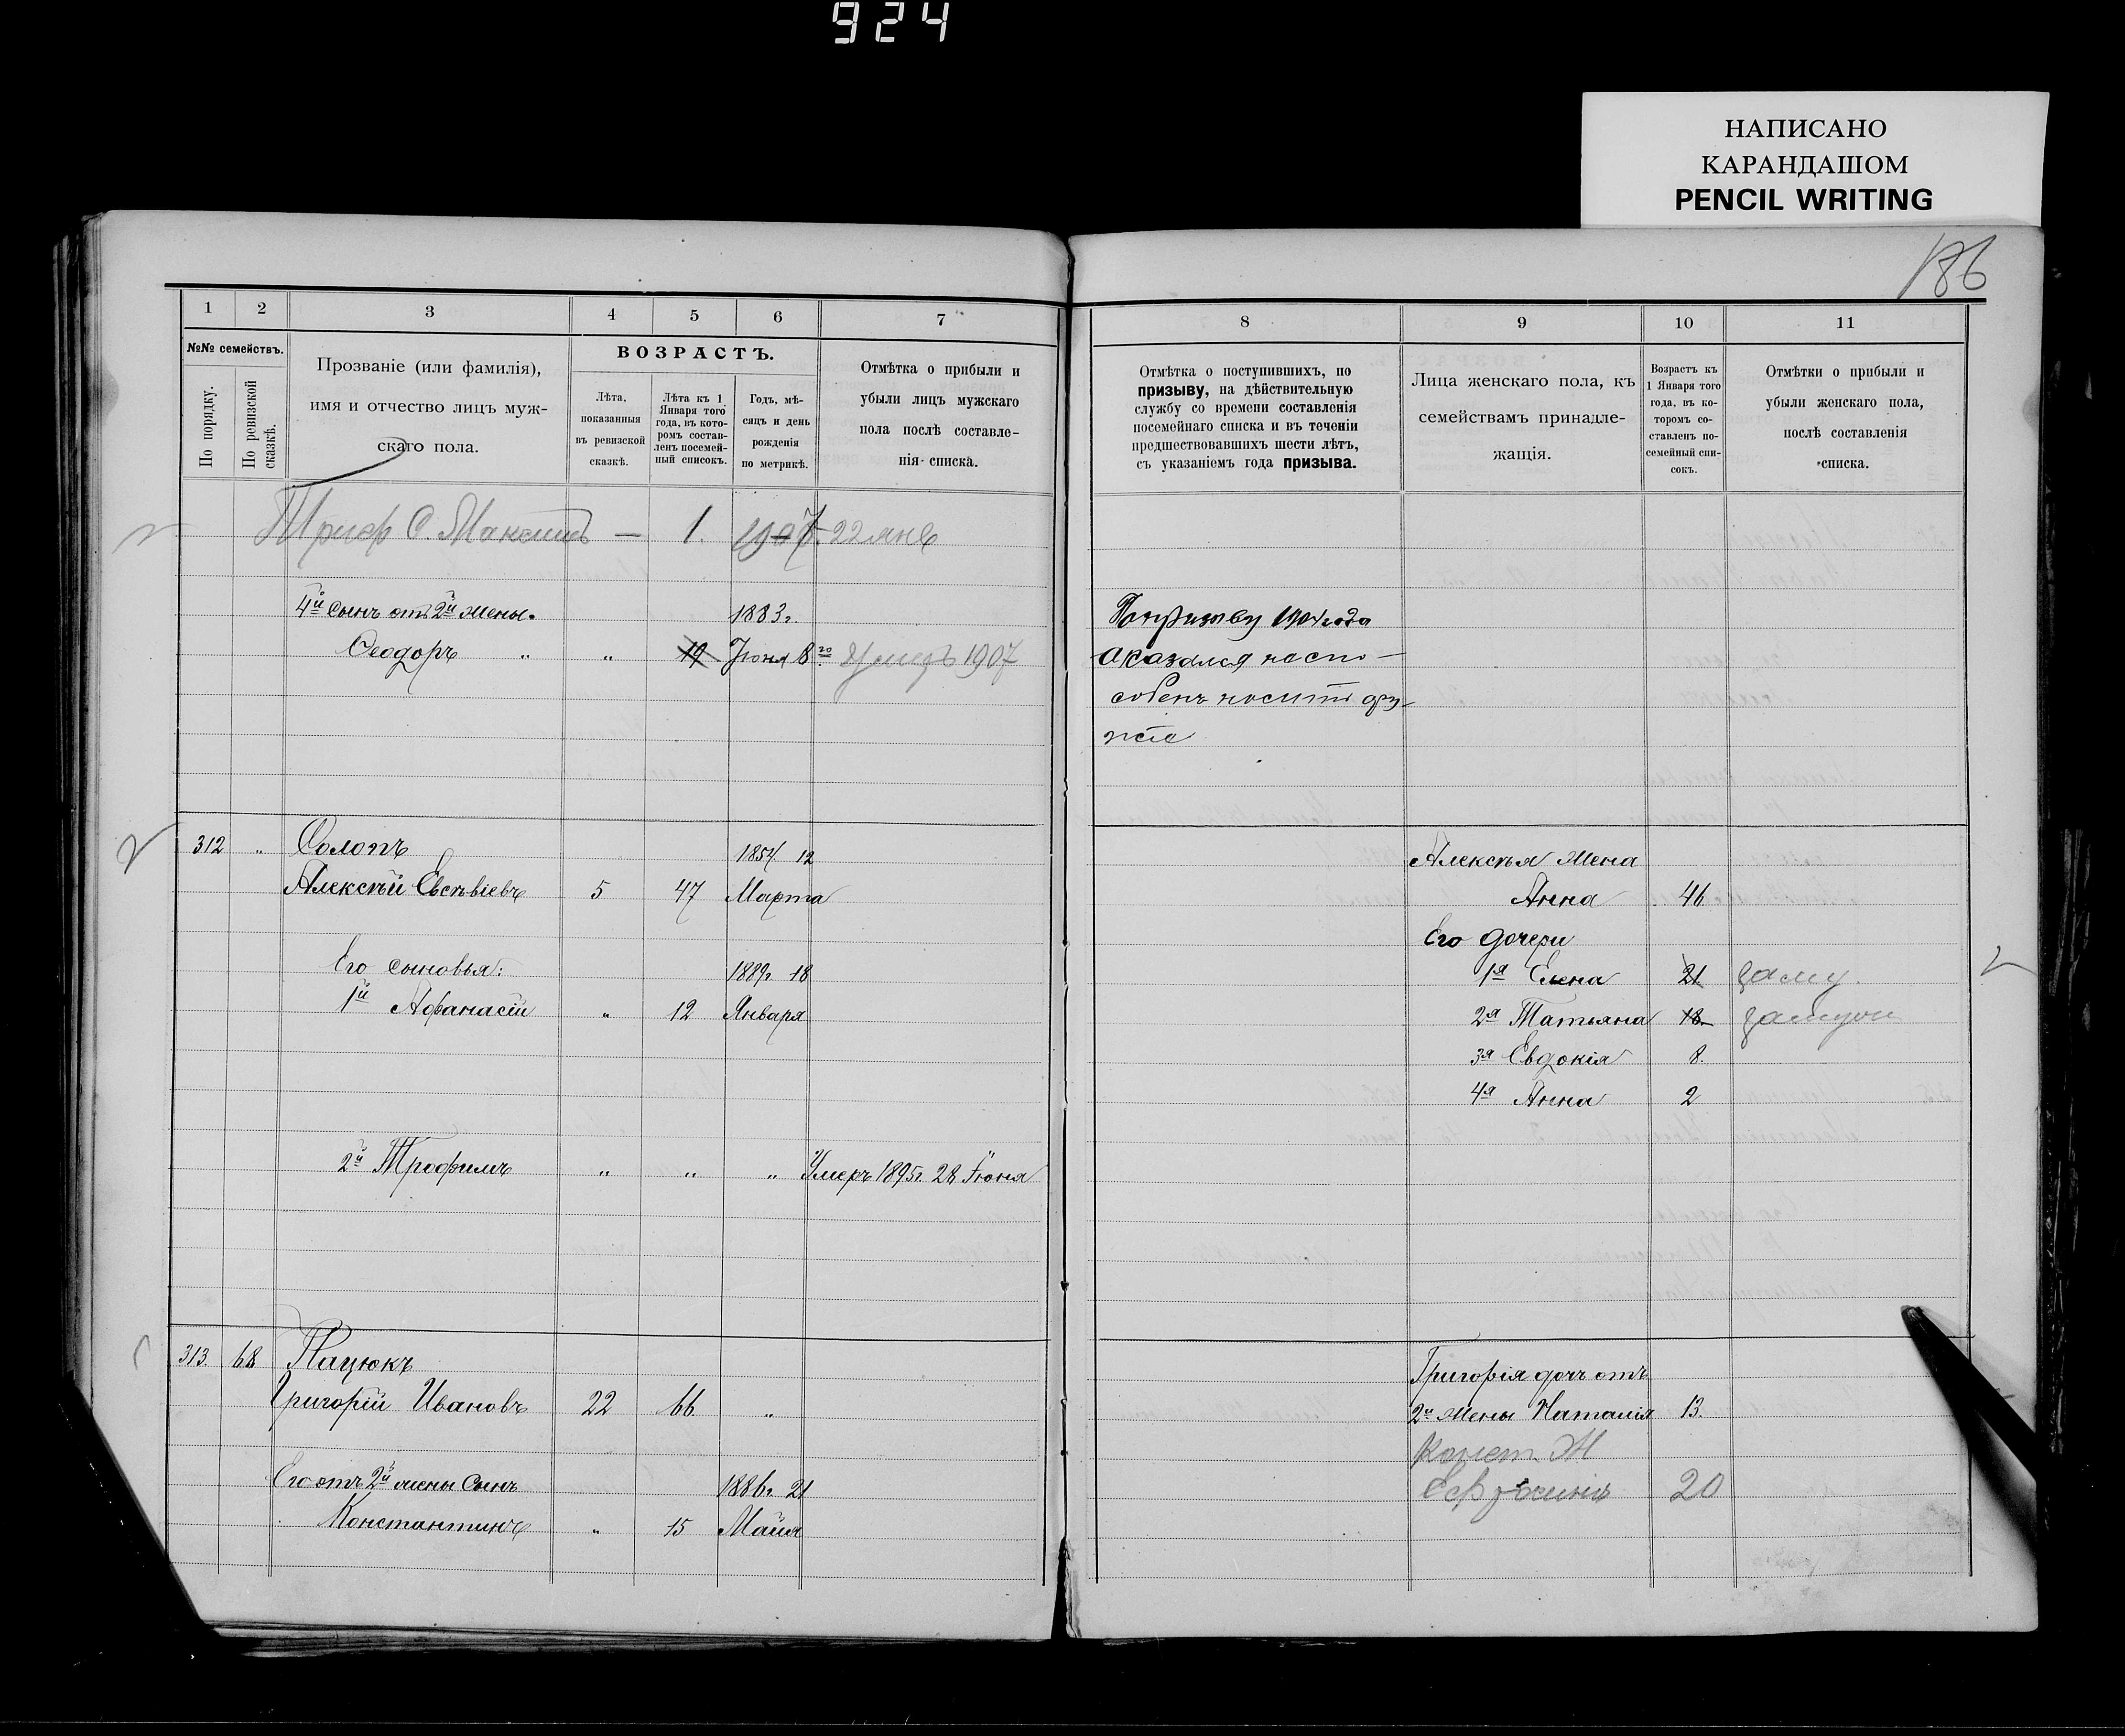 924
НАПИСАНО
КАРАНДАШОМ
PENCIL WRITING
186
1 2 3 4 5 6 7
№№ семействъ.
По порядку.
По ревизской сказкѣ.
Прозваніе (или фамилія),
имя и отчество лицъ муж-
скаго пола.
ВОЗРАСТЪ.
Лѣта,
показанныя
въ ревизской
сказкѣ.
Лѣта къ 1
Января того
года, въ кото-
ромъ состав-
ленъ посемей-
ный списокъ.
Годъ, мѣ-
сяцъ и день
рожденія
по метрикѣ.
Отмѣтка о прибыли и
убыли лицъ мужскаго
пола послѣ составле-
нія списка.
8 9 10 11
Отмѣтка о поступившихъ, по
призыву, на дѣйствительную
службу со времени составленія
посемейнаго списка и въ теченіи
предшествовавшихъ шести лѣтъ,
съ указаніемъ года призыва.
Лица женскаго пола, къ
семействамъ принадле-
жащія.
Возрастъ къ
1 Января того
года, въ ко-
торомъ со-
ставленъ по-
семейный спи-
сокъ.
Отмѣтки о прибыли и
убыли женскаго пола,
послѣ составленія
списка.
С. Максимъ — 1. 1907 22 янв
4й сынъ отъ 2й жены. 1883г.
Ѳеодоръ " " 19 Іюня 8го Умеръ 1907
По призыву 1904 года
оказался неспо-
собенъ носить ору-
жіе
312 " Солопъ 1854 12
Алексѣй Евсѣвіевъ 5 47 Марта
Его сыновья: 1889г. 18
1й Афанасій " 12 Января
2й Трофимъ " " " Умеръ 1895г. 28 Іюня
Алексѣя жена
Анна 46
Его дочери
1я Елена 21 заму.
2я Татьяна 18 замужн
3я Евдокія 8
4я Анна 2
313. 68 Пацюкъ
Григорій Ивановъ 22 66 "
Его отъ 2й жены сынъ 1886г. 21
Константинъ " 15 Майя
Григорія дочь отъ
2й жены Наталія 13.
Конст. Ж
20